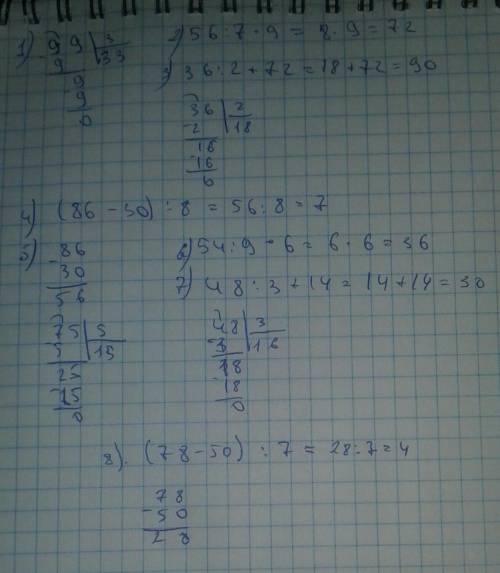 1) 99 | 3
- 9 | 33
9
9
0
2) 56 : 7 · 9 = 8 · 9 = 72
3) 36 : 2 + 72 = 18 + 72 = 90
36 | 2
- 2 | 18
16
16
0
4) (86 - 30) : 8 = 56 : 8 = 7
5) 86
- 30
56
75 | 5
- 5 | 15
25
- 25
0
6) 54 : 9 · 6 = 6 · 6 = 36
7) 48 : 3 + 14 = 14 + 14 = 30
48 | 3
- 3 | 16
18
- 18
0
8). (78 - 50) : 7 = 28 : 7 = 4
78
- 50
28